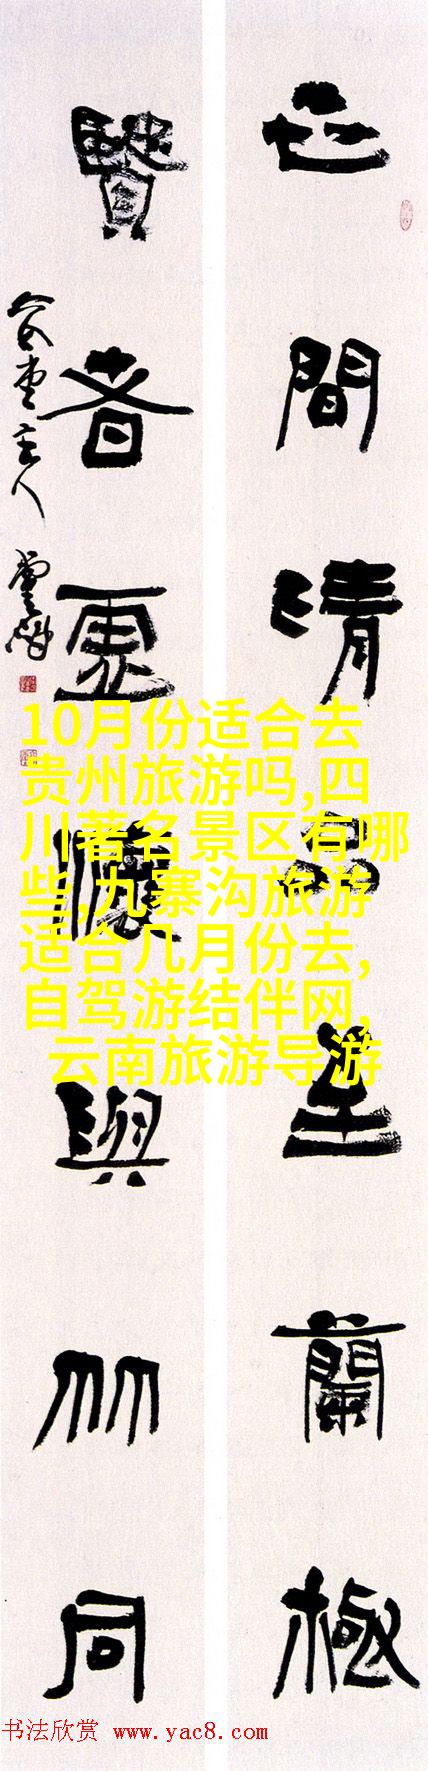 世間清品至蘭極
賢者虛懷與竹同
主人
10月份适合去
贵州旅游吗,四
川著名景区有哪
些,九寨沟旅游
适合几月份去,
自驾游结伴网,
云南旅游导游
书法欣赏 www.yac8.com